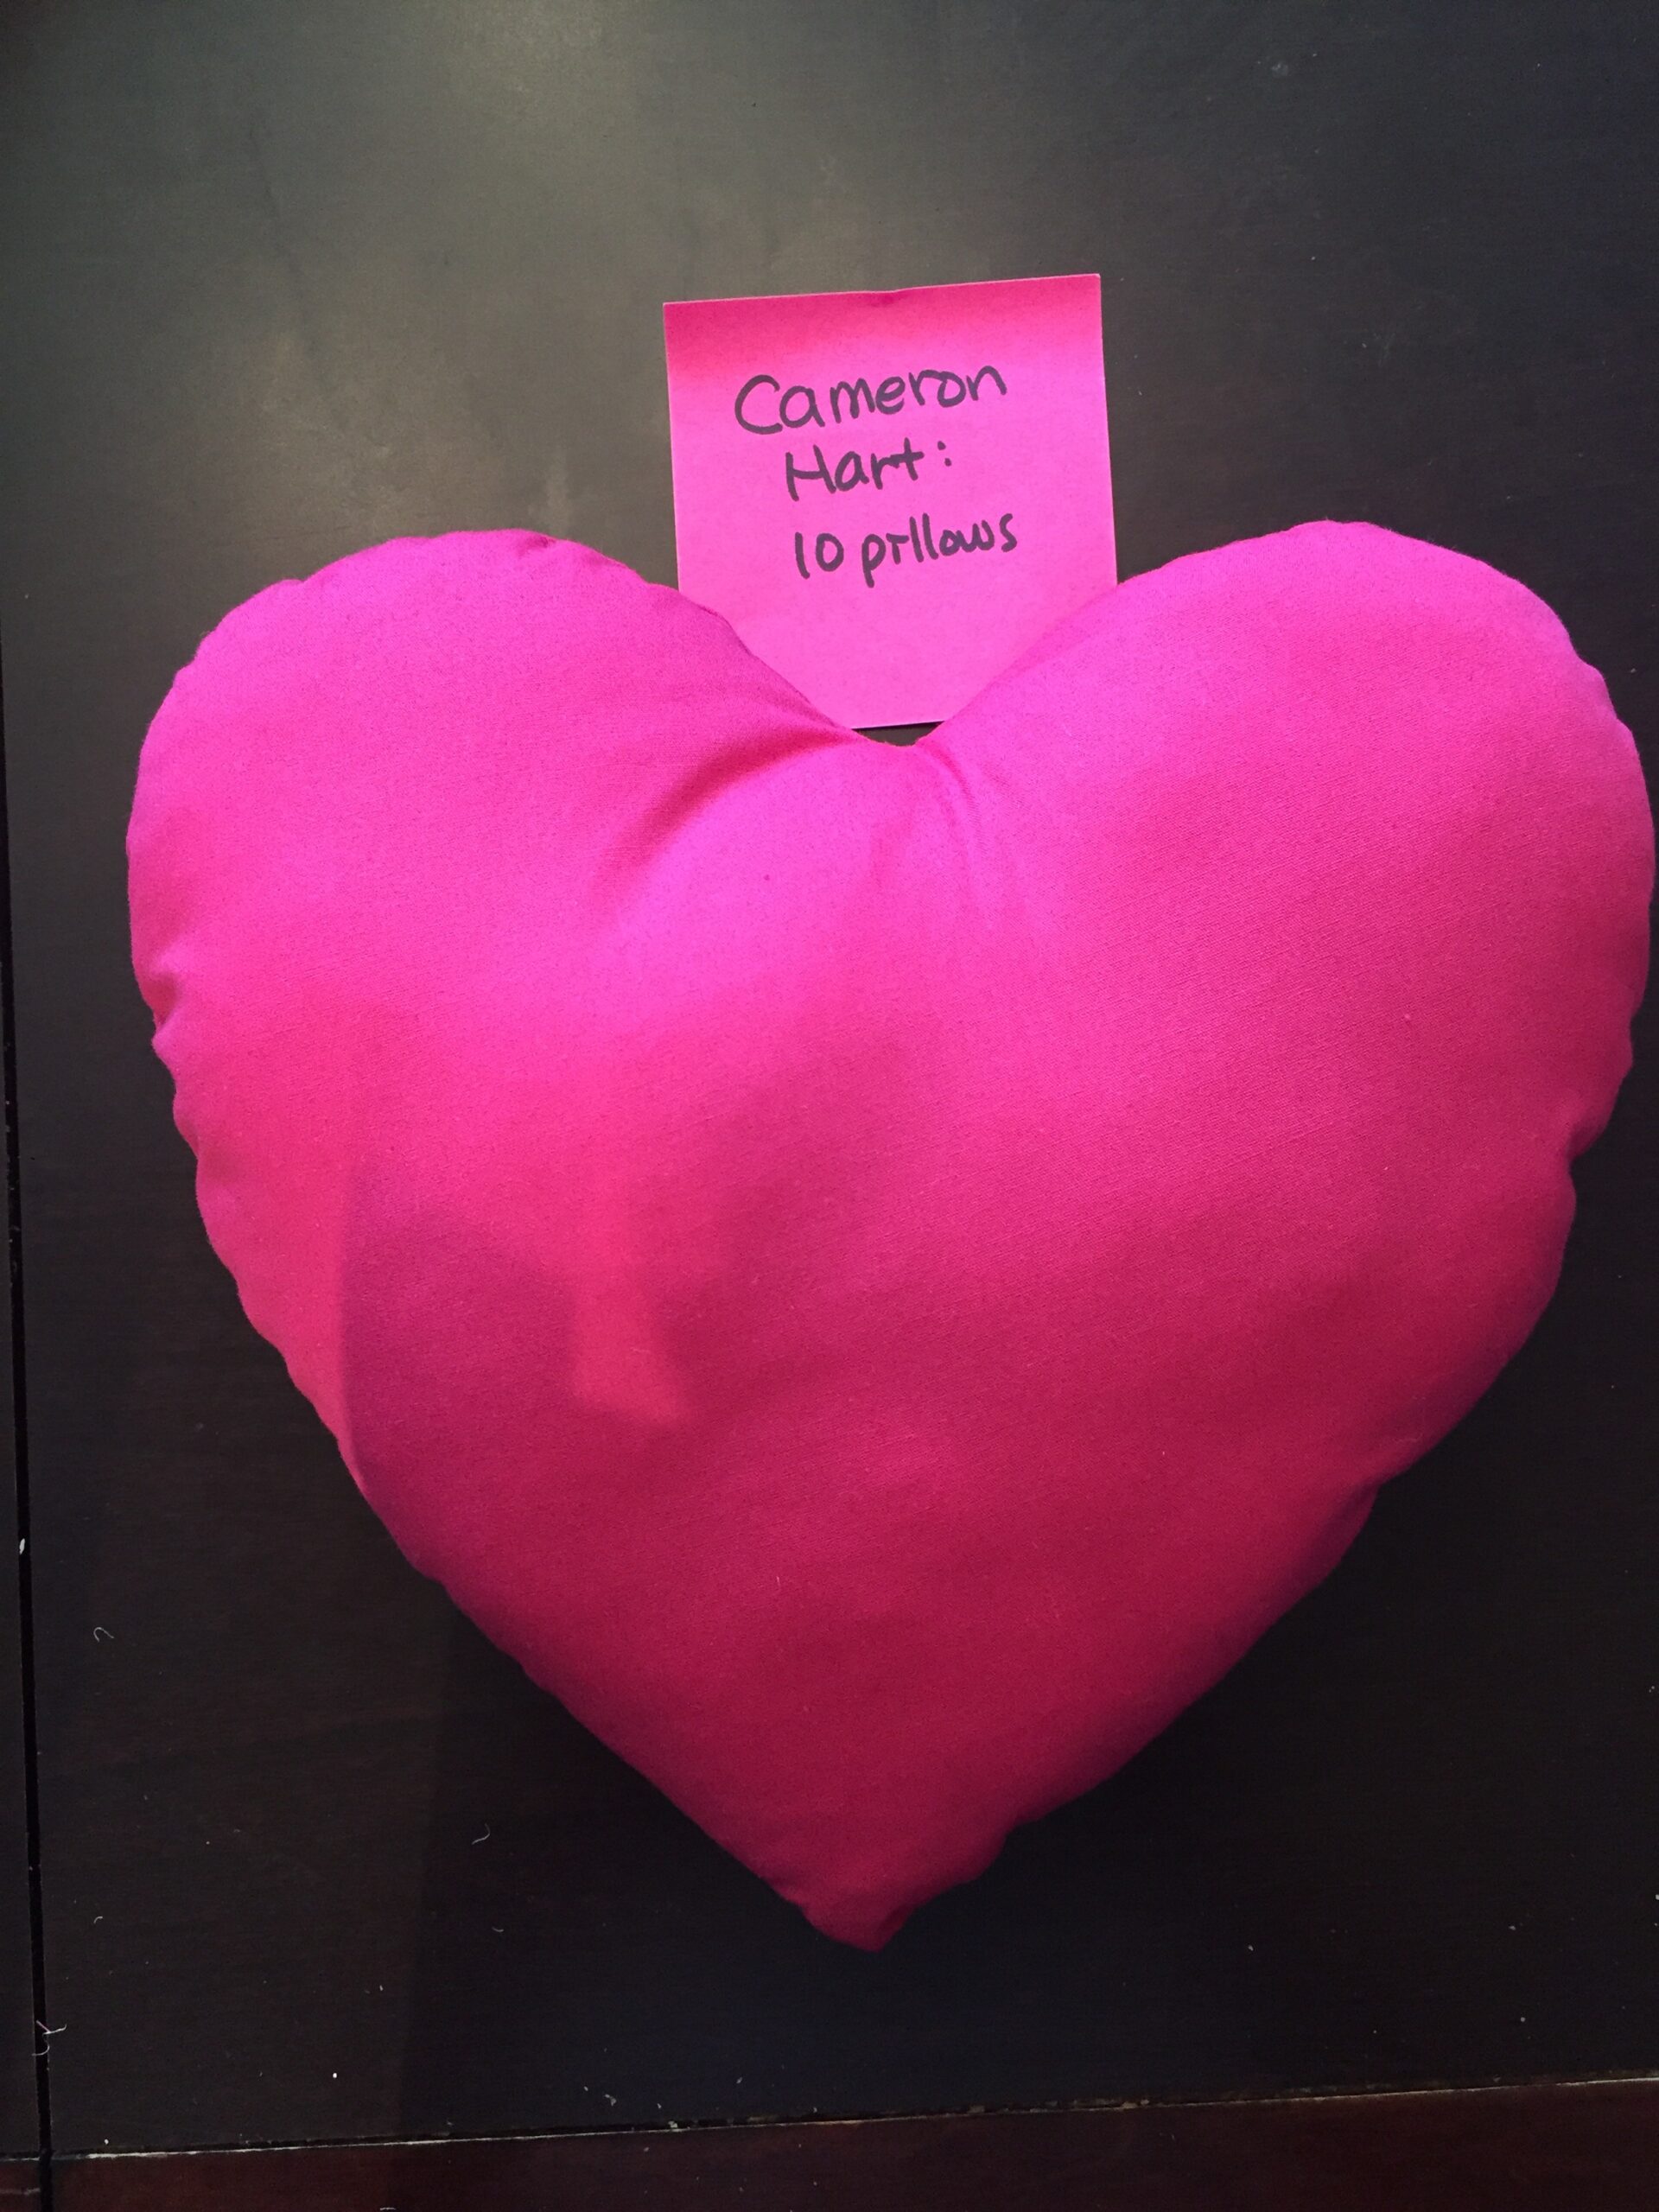 Cameron
Hart:
10 pillows